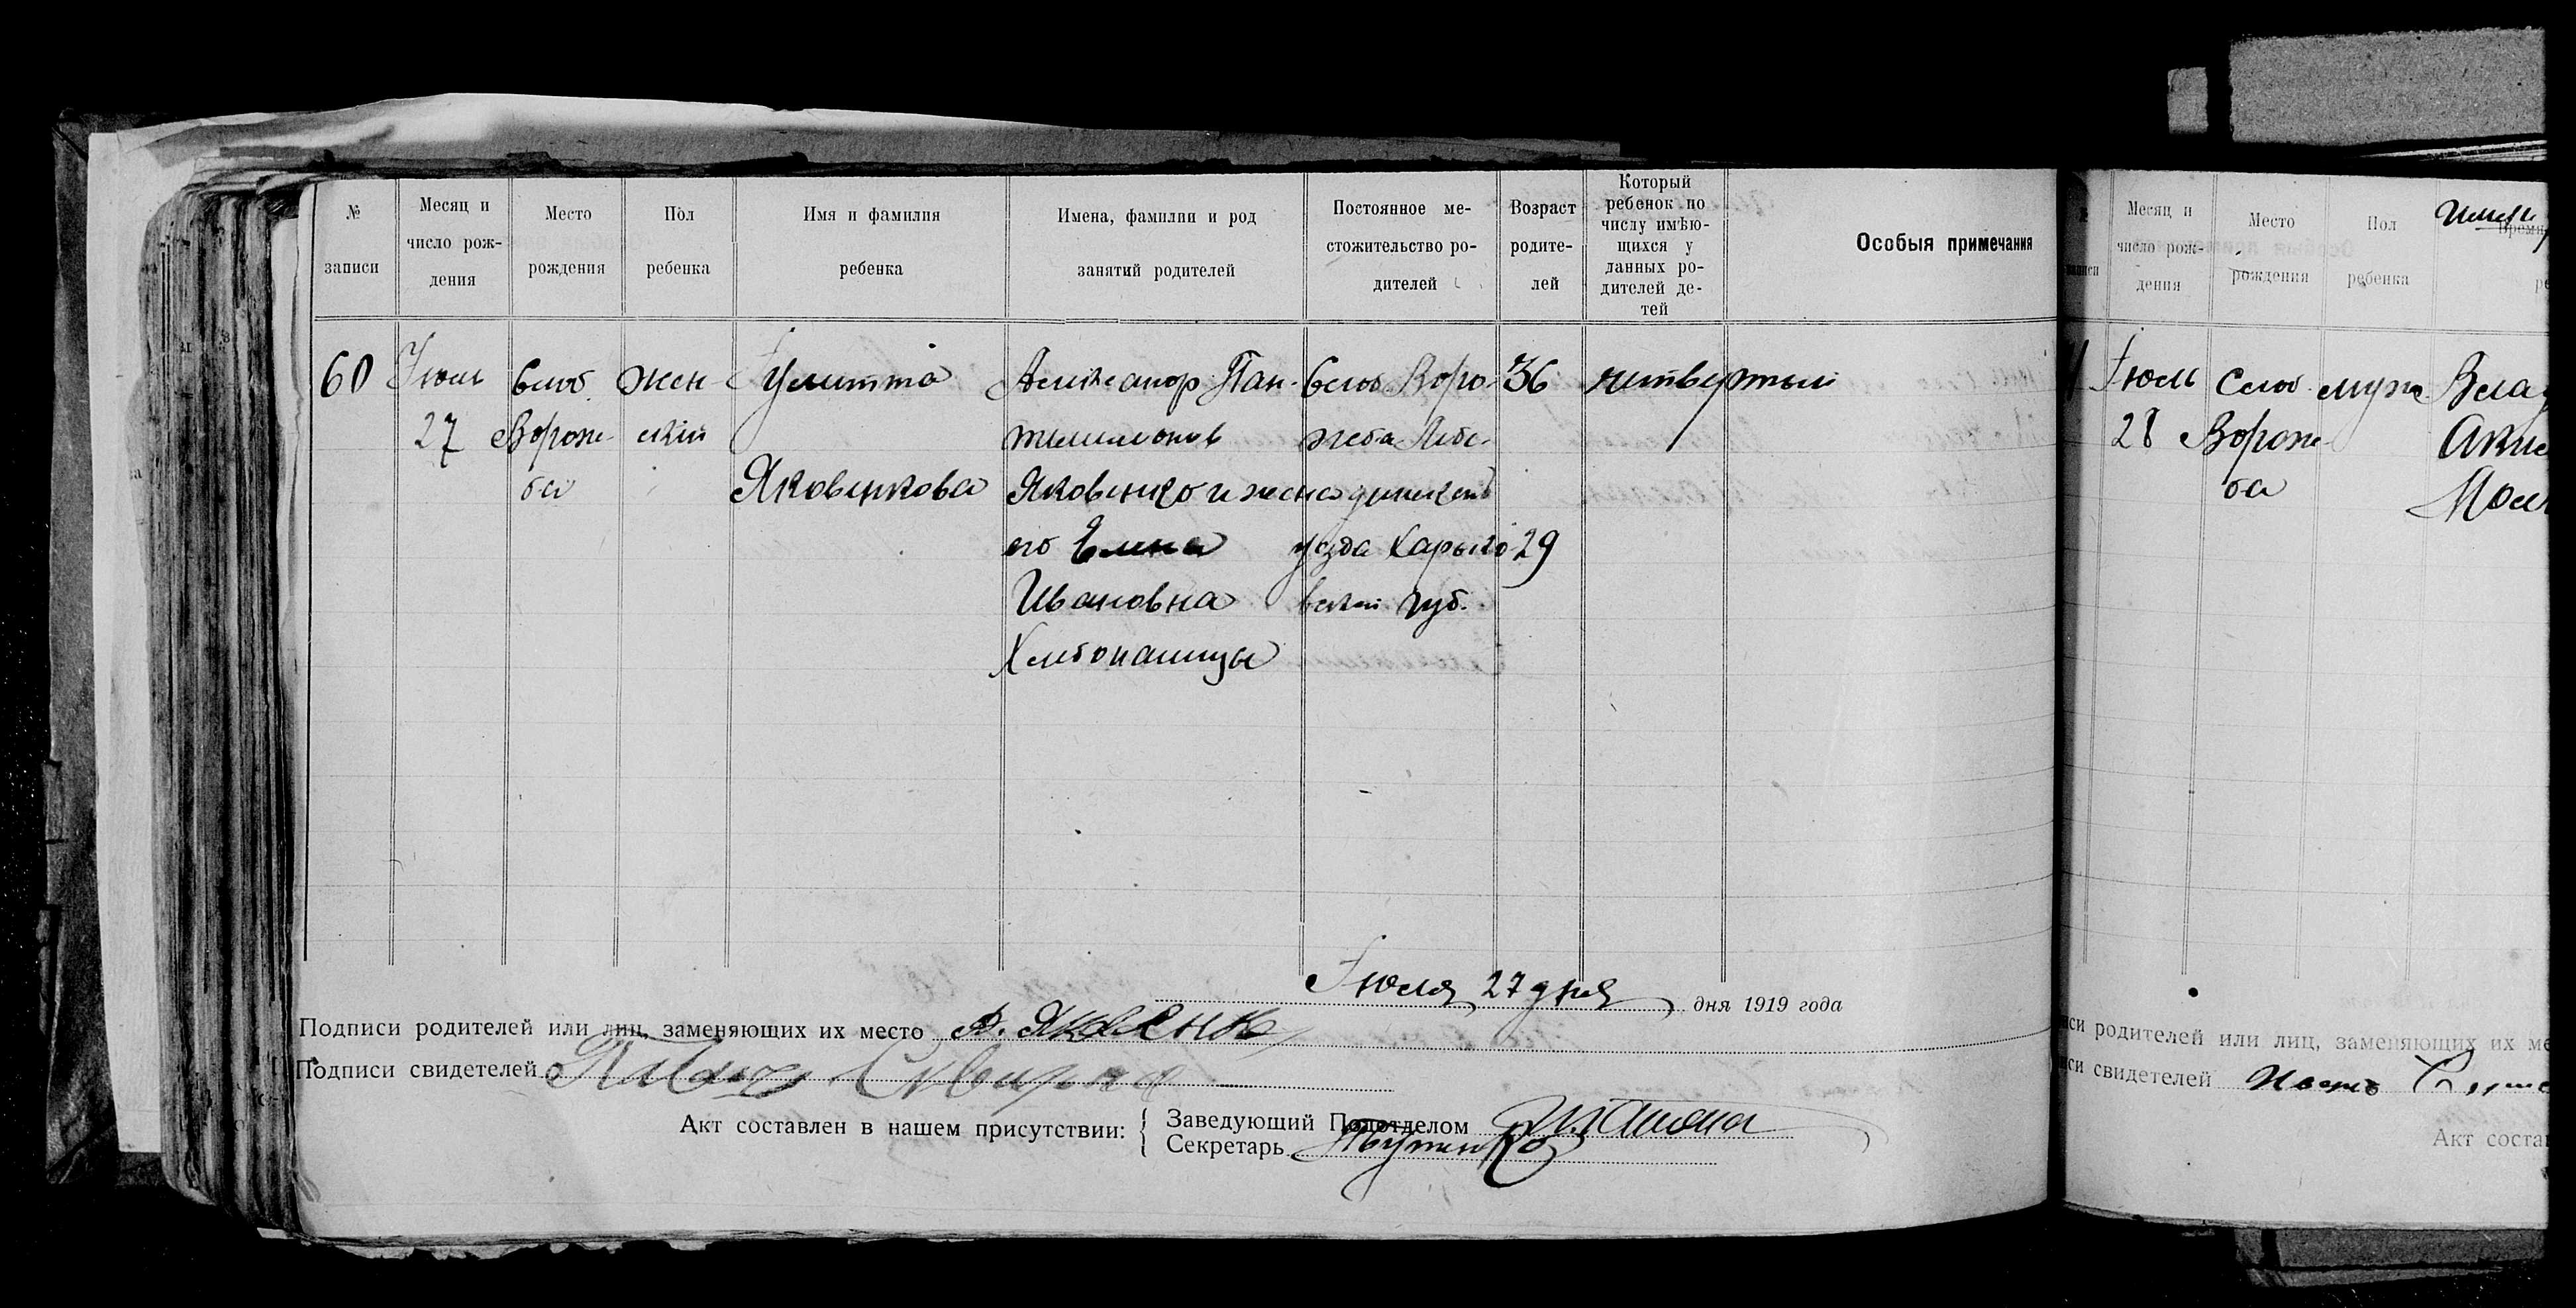 № записи
Месяц и число рождения
Место рождения
Пол ребенка
Имя и фамилия ребенка
Имена, фамилии и род занятий родителей
Постоянное ме-
стожительство ро-
дителей
Возраст
родите-
лей
Который
ребенок по
числу имѣю-
щихся у
данных ро-
дителей де-
тей
Особыя примечания
60
Июль
27
Слоб.
Ворож-
ба
Жен-
ский
Иулитта
Яковенкова
Александр Пан-
телимонов
Яковенко и жена
его Елена
Ивановна
Хлебопашцы
Слоб. Воро-
жеба Лебе-
динскаго
уезда Харько-
вской губ.
36
29
четвертый
Июля 27 дня дня 1919 года
Подписи родителей или лиц, заменяющих их место А. Яковенко
Подписи свидетелей
Акт составлен в нашем присутствии:
Заведующий Подотделом
Секретарь
Месяц и
число рож-
дения
Место
рождения
Пол
ребенка
Июль
28
Слоб.
Ворож-
ба
муж.
иси родителей или лиц, заменяющих их ме
иси свидетелей
Акт соста